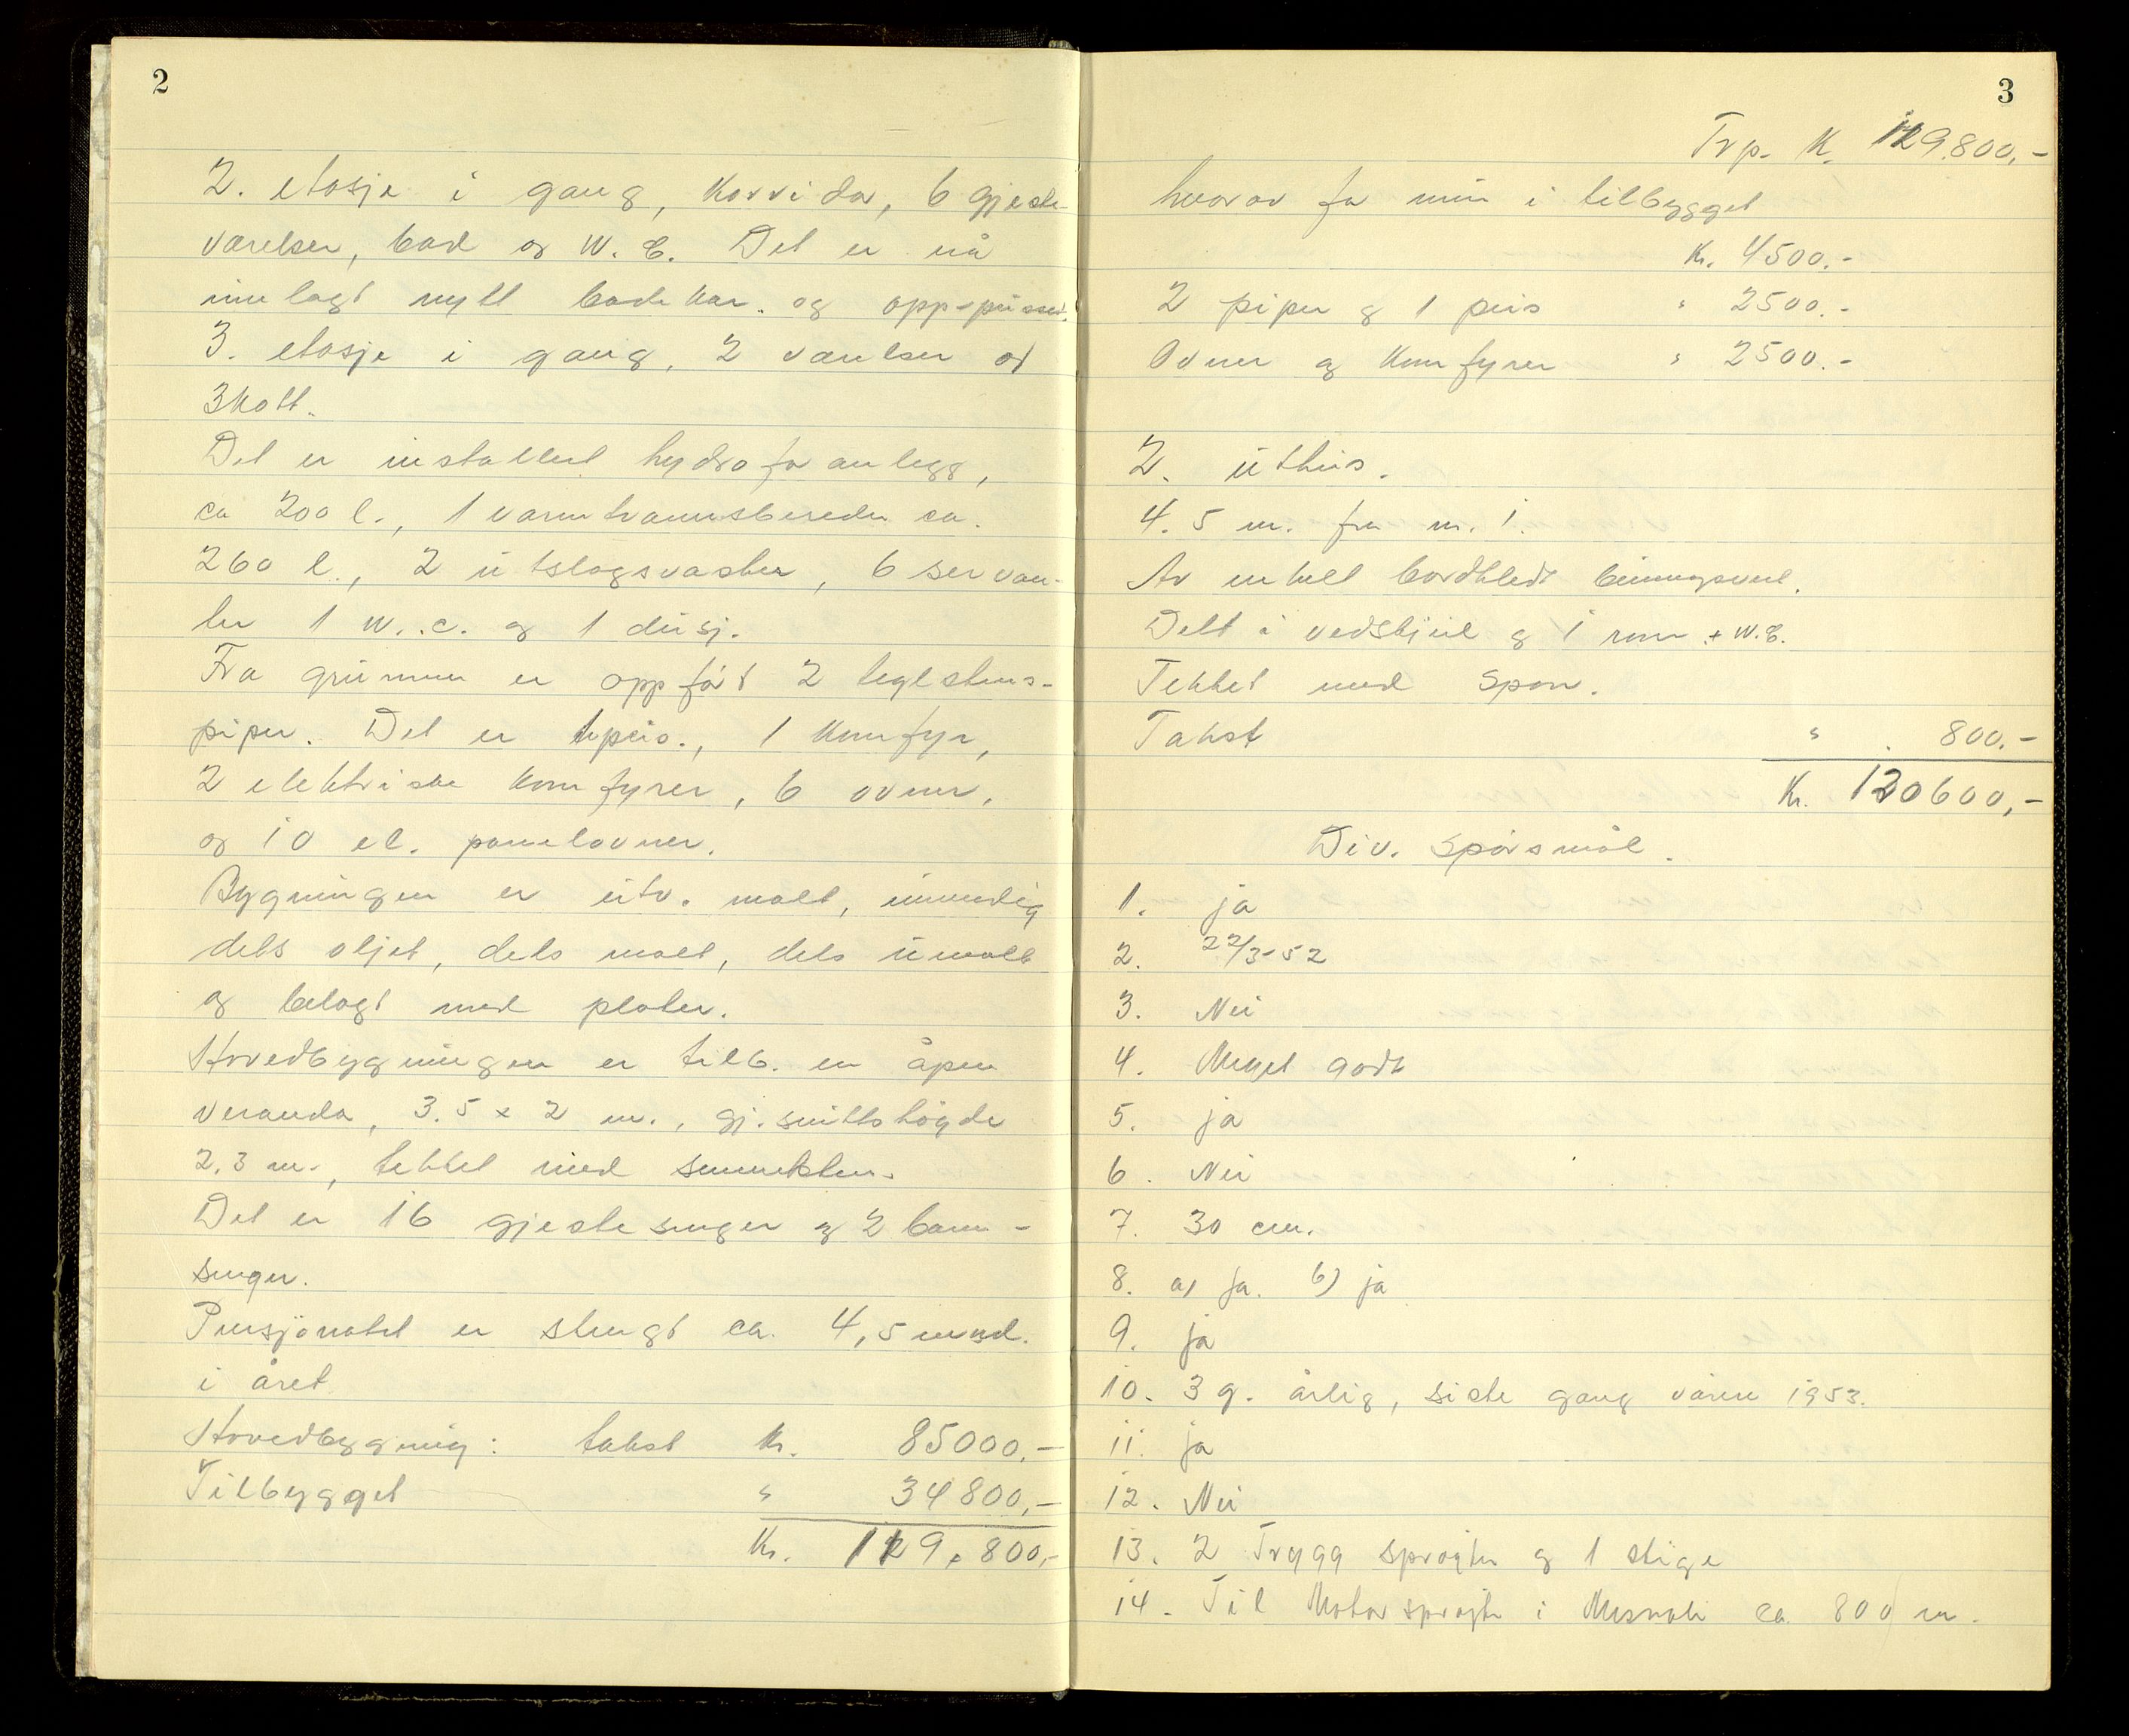 2
2. etasje i gang, korridor, 6 gjeste-
værelser, bad og W. C. Det er nå
innlagt nytt badekar. og opp-pusset.
3. etasje i gang, 2 værelser og
3 kott.
Det er installert hydroforanlegg,
ca 200 l., 1 varmtvannsbereder ca.
260 l., 2 utslagsvasker, 6 servan-
ter 1 w.c. og 1 dusj.
Fra grunnen er oppført 2 teglstens-
piper. Det er 1 peis., 1 komfyr,
2 elektriske komfyrer, 6 ovner,
og 10 el. panelovner.
Bygningen er utv. malt, innvendig
dels oljet, dels malt, dels umalt
og belagt med plater.
Hovedbygningen er tilb. en åpen
veranda, 3.5 x 2 m., gj.snittshøyde
2.3 m., tekket med
Det er 16 gjestesenger og 2 barne-
senger.
Pensjonatet er stengt ca. 4,5 mnd.
i året
Hovedbygning: takst kr. 85000,-
Tilbygget " 34800,-
Kr. 119.800,-
3
Trp. K. 119.800,-
hvorav for mur i tilbygget
Kr. 4500.-
2 piper og 1 peis " 2500.-
Ovner og komfyrer " 2500.-
2. uthus.
4.5 m. fra nr. 1.
Av enkelt bordkledt bindingsverk.
Delt i vedskjul og 1 rom + W.C.
Tekket med spon.
Takst " 800.-
Kr. 120600,-
Div. spørsmål.
1. ja
2. 22/3-52
3. Nei
4. Meget godt
5. ja
6. Nei
7. 30 cm.
8. a) ja. b) ja
9. ja
10. 3 g. årlig, siste gang våren 1953.
11. ja
12. Nei
13. 2 Trygg sprøyter og 1 stige
14. Til Motorsprøyte i Mesnali ca. 800 m.